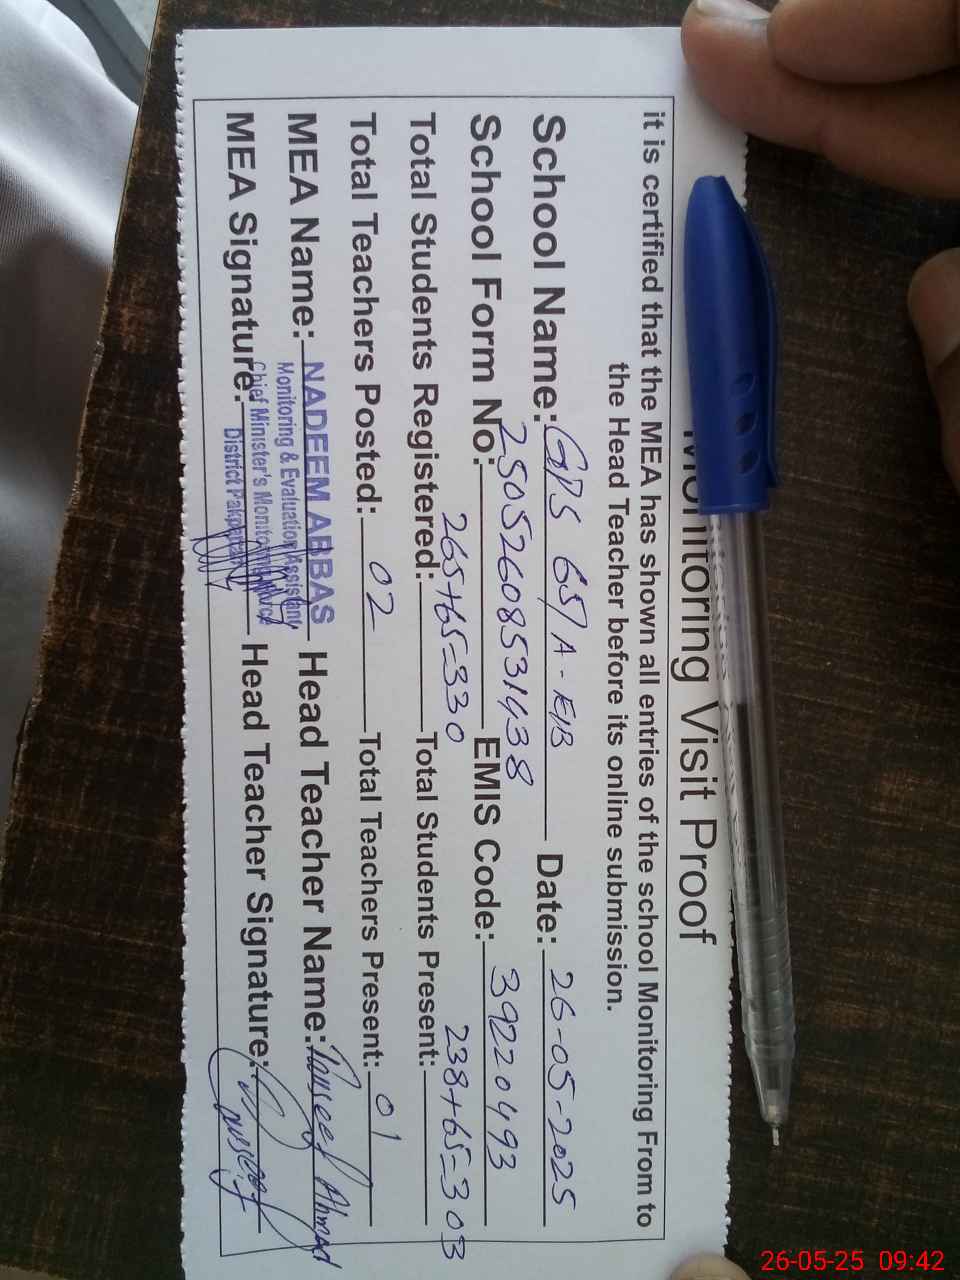 Monitoring Visit Proof
it is certified that the MEA has shown all entries of the school Monitoring From to
the Head Teacher before its online submission.
School Name: GPS 65/A-EB Date: 26-05-2025
School Form No: 25052608531438 EMIS Code: 39220493
Total Students Registered: 265+65=330 Total Students Present: 238+65=303
Total Teachers Posted: 02 Total Teachers Present: 01
MEA Name: NADEEM ABBAS Head Teacher Name: Ahmad
Monitoring & Evaluation Assistant
MEA Signature: Head Teacher Signature:
Chief Minister's Monitoring Force
District Pakpattan
26-05-25 09:42